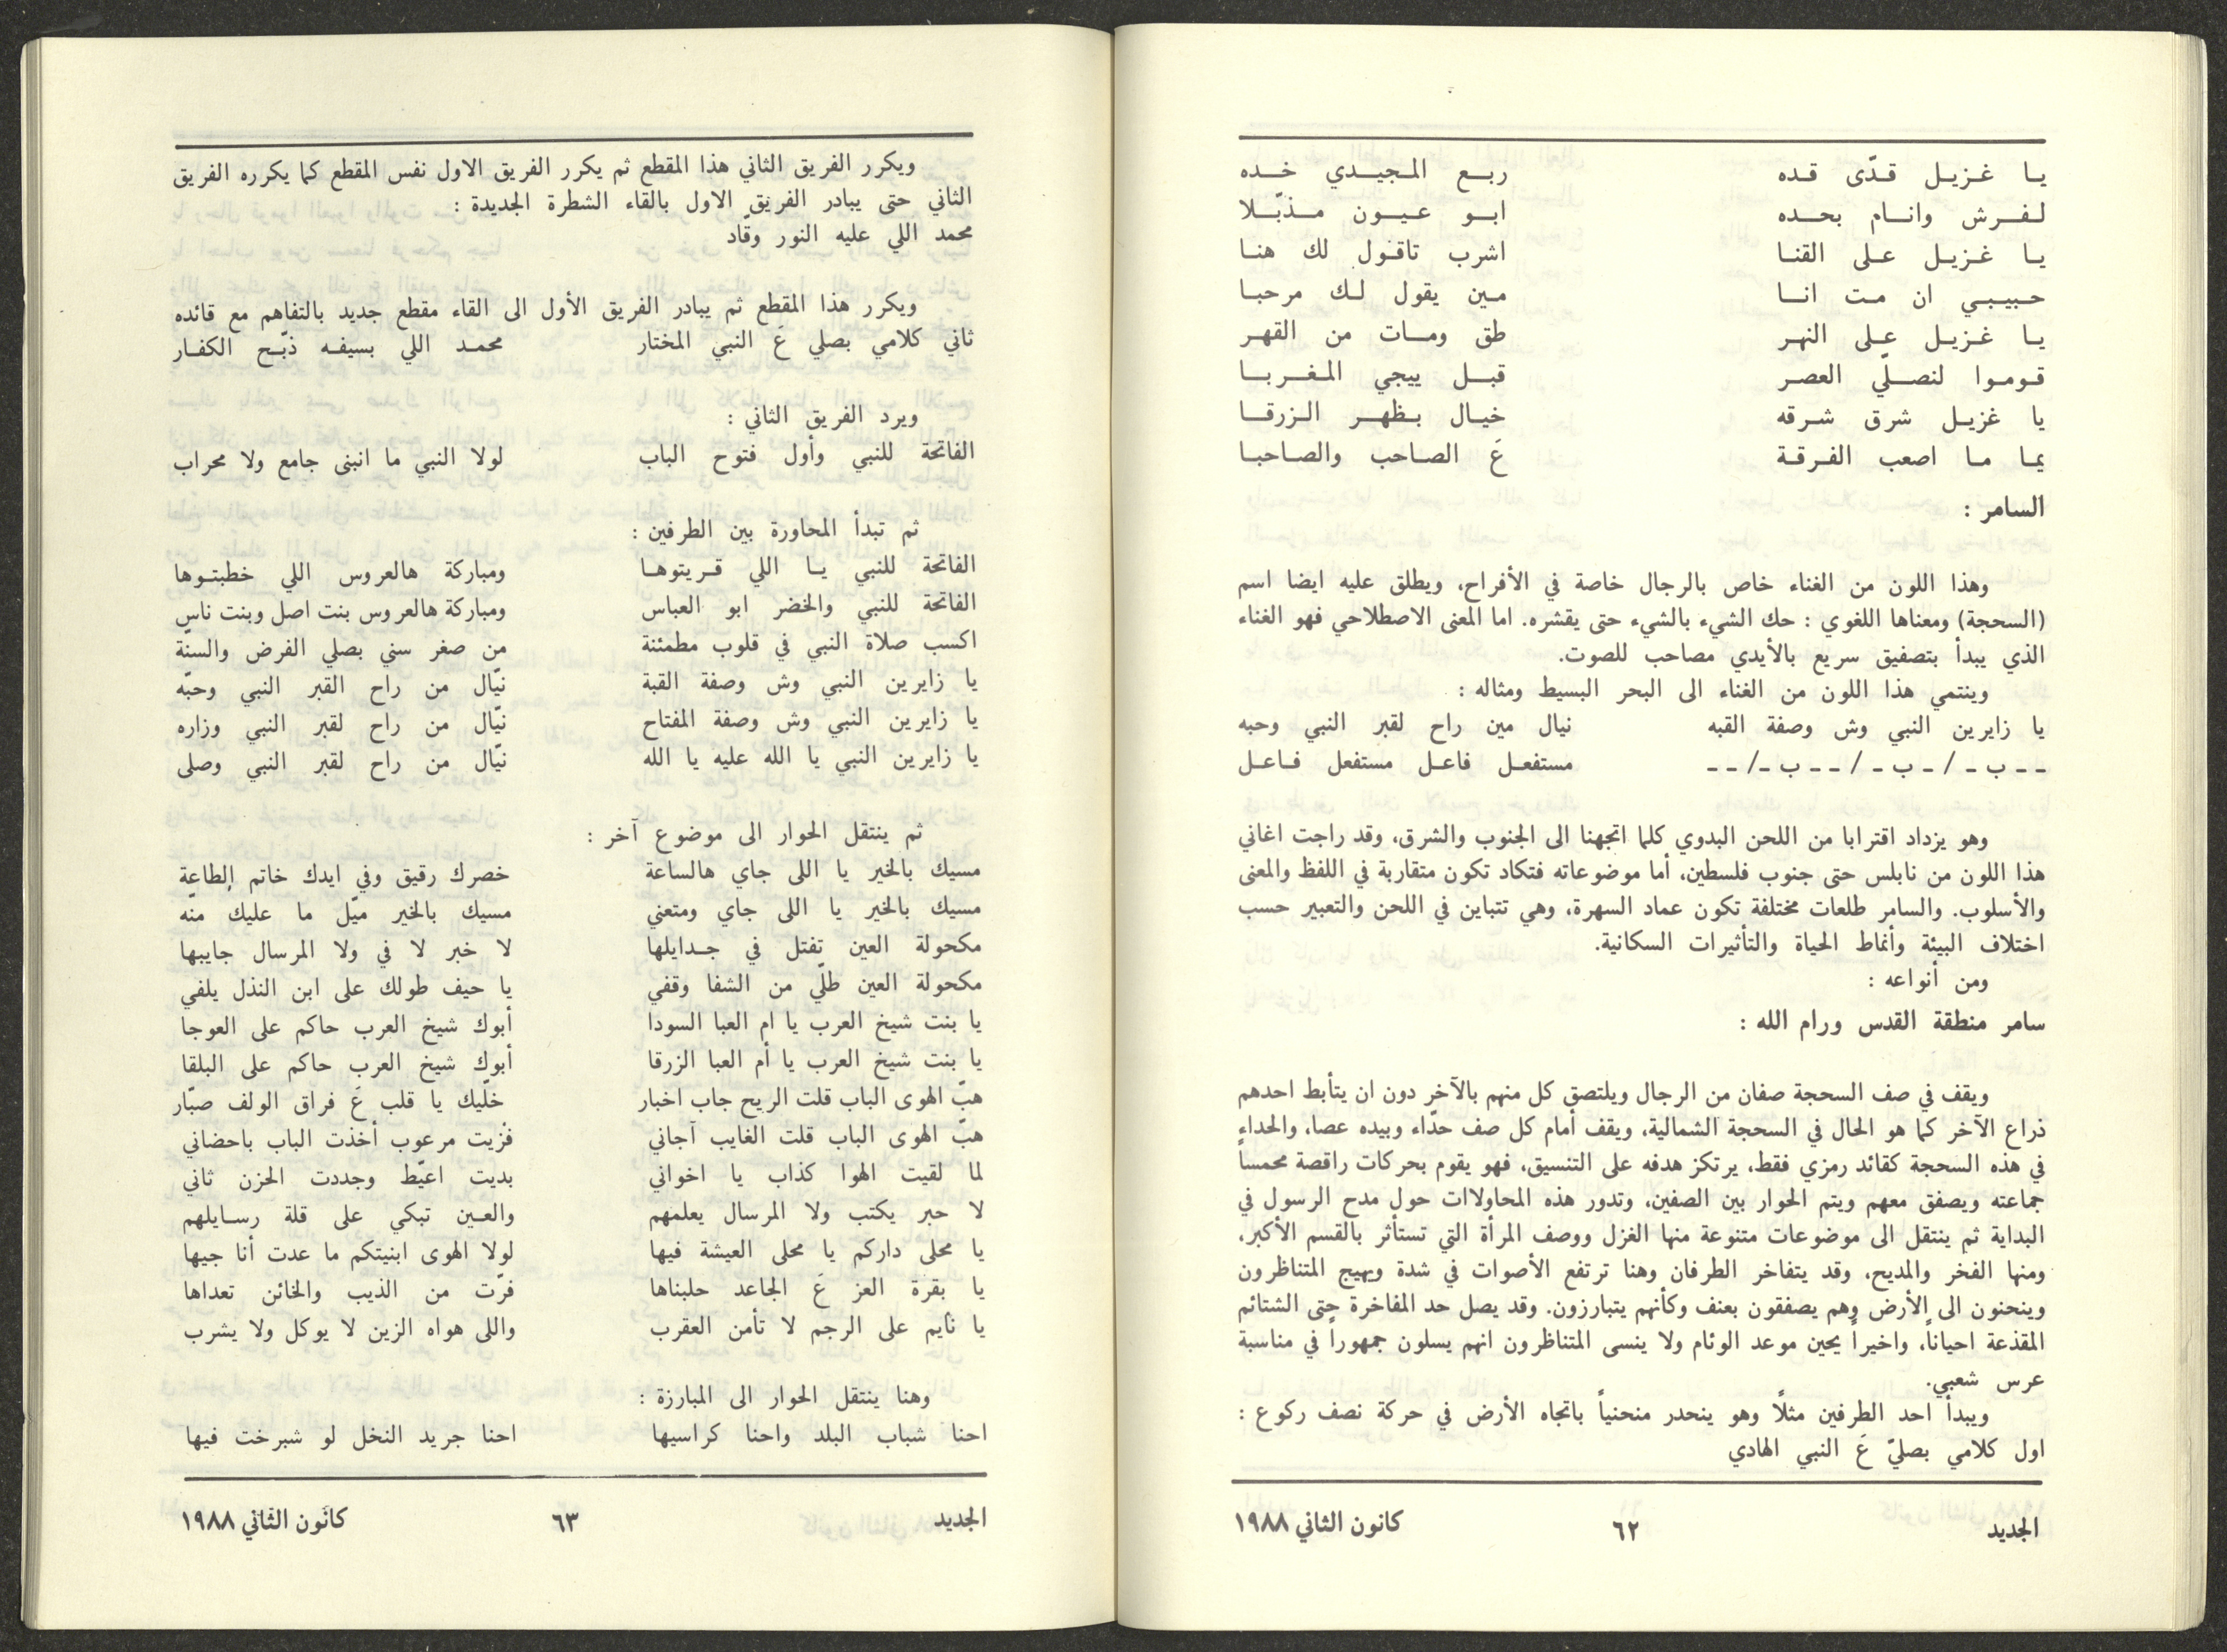 يا غزيل قدّى قده ربع المجيدي خده
لفرش وانام بحده ابو عيون مذبّلا
يا غزيل على القنا اشرب تاقول لك هنا
حبيبي ان مت انا مين يقول لك مرحبا
يا غزيل على النهر طق ومات من القهر
قوموا لنصلّي العصر قبل ييجي المغربا
يا غزيل شرق شرقه خيال بظهر الزرقا
يما ما اصعب الفرقة عَ الصاحب والصاحبا
السامر :
وهذا اللون من الغناء خاص بالرجال خاصة في الأفراح، ويطلق عليه ايضا اسم
(السحجة) ومعناها اللغوي : حك الشيء بالشيء حتى يقشره. اما المعنى الاصطلاحي فهو الغناء
الذي يبدأ بتصفيق سريع بالأيدي مصاحب للصوت.
وينتمي هذا اللون من الغناء الى البحر البسيط ومثاله :
يا زايرين النبي وش وصفة القبه نيال مين راح لقبر النبي وحبه
ـ ـ ب ـ / ـ ب ـ / ـ ـ ب ـ / ـ ـ مستفعل فاعل مستفعل فاعل
وهو يزداد اقترابا من اللحن البدوي كلما اتجهنا الى الجنوب والشرق، وقد راجت اغاني
هذا اللون من نابلس حتى جنوب فلسطين، أما موضوعاته فتكاد تكون متقاربة في اللفظ والمعنى
والأسلوب. والسامر طلعات مختلفة تكون عماد السهرة، وهي تتباين في اللحن والتعبير حسب
اختلاف البيئة وأنماط الحياة والتأثيرات السكانية.
ومن أنواعه :
سامر منطقة القدس ورام الله :
ويقف في صف السحجة صفان من الرجال ويلتصق كل منهم بالآخر دون ان يتأبط احدهم
ذراع الآخر كما هو الحال في السحجة الشمالية، ويقف أمام كل صف حدّاء وبيده عصا، والحداء
في هذه السحجة كقائد رمزي فقط، يرتكز هدفه على التنسيق، فهو يقوم بحركات راقصة محمساً
جماعته ويصفق معهم ويتم الحوار بين الصفين، وتدور هذه المحاولات حول مدح الرسول في
البداية ثم ينتقل الى موضوعات متنوعة منها الغزل ووصف المرأة التي تستأثر بالقسم الأكبر،
ومنها الفخر والمديح، وقد يتفاخر الطرفان وهنا ترتفع الأصوات في شدة ويهيج المتناظرون
وينحنون الى الأرض وهم يصفقون بعنف وكأنهم يتبارزون. وقد يصل حد المفاخرة حتى الشتائم
المقذعة احياناً، واخيراً يحين موعد الوئام ولا ينسى المتناظرون انهم يسلون جمهوراً في مناسبة
عرس شعبي.
ويبدأ احد الطرفين مثلاً وهو ينحدر منحنياً باتجاه الأرض في حركة نصف ركوع :
اول كلامي بصليّ عَ النبي الهادي
الجديد ٦٢ كانون الثاني ١٩٨٨
ويكرر الفريق الثاني هذا المقطع ثم يكرر الفريق الاول نفس المقطع كما يكرره الفريق
الثاني حتى يبادر الفريق الاول بالقاء الشطرة الجديدة :
محمد اللي عليه النور وقّاد
ويكرر هذا المقطع ثم يبادر الفريق الأول الى القاء مقطع جديد بالتفاهم مع قائده
ثاني كلامي بصلي عَ النبي المختار محمد اللي بسيفه ذبّح الكفار
ويرد الفريق الثاني :
الفاتحة للنبي وأول فتوح الباب لولا النبي ما انبنى جامع ولا محراب
ثم تبدأ المحاورة بين الطرفين :
الفاتحة للنبي يا اللي قريتوها ومباركة هالعروس اللي خطبتوها
الفاتحة للنبي والخضر ابو العباس ومباركة هالعروس بنت اصل وبنت ناس
اكسب صلاة النبي في قلوب مطمئنة من صغر سني بصلي الفرض والسنّة
يا زايرين النبي وش وصفة القبة نيّال من راح القبر النبي وحبّه
يا زايرين النبي وش وصفة المفتاح نيّال من راح لقبر النبي وزاره
يا زايرين النبي يا الله عليه يا الله نيّال من راح لقبر النبي وصلى
ثم ينتقل الحوار الى موضوع آخر :
مسيك بالخير يا اللى جاي هالساعة خصرك رقيق وفي ايدك خاتم الطاعة
مسيك بالخير يا اللى جاي ومتعني مسيك بالخير ميّل ما عليك منّه
مكحولة العين تفتل في جدايلها لا خبر لا في ولا المرسال جايبها
مكحولة العين طلّي من الشفا وقفي يا حيف طولك على ابن النذل يلفي
يا بنت شيخ العرب يا ام العبا السودا أبوك شيخ العرب حاكم على العوجا
يا بنت شيخ العرب يا أم العبا الزرقا أبوك شيخ العرب حاكم على البلقا
هبّ الهوى الباب قلت الريح جاب اخبار خلّيك يا قلب عَ فراق الولف صبّار
هبّ الهوى الباب قلت الغايب آجاني فزيت مرعوب أخذت الباب باحضاني
لما لقيت الهوا كذاب يا اخواني بديت اعيّط وجددت الحزن ثاني
لا حبر يكتب ولا المرسال يعلمهم والعين تبكي على قلة رسايلهم
يا محلى داركم يا محلى العيشة فيها لولا الهوى ابنيتكم ما عدت أنا جيها
يا بقرة العز عَ الجاعد حلبناها فرّت من الذيب والخائن تعداها
يا نايم على الرجم لا تأمن العقرب واللى هواه الزين لا يوكل ولا يشرب
وهنا ينتقل الحوار الى المبارزة :
احنا شباب البلد واحنا كراسيها احنا جريد النخل لو شبرخت فيها
الجديد ٦٣ كانون الثاني ١٩٨٨